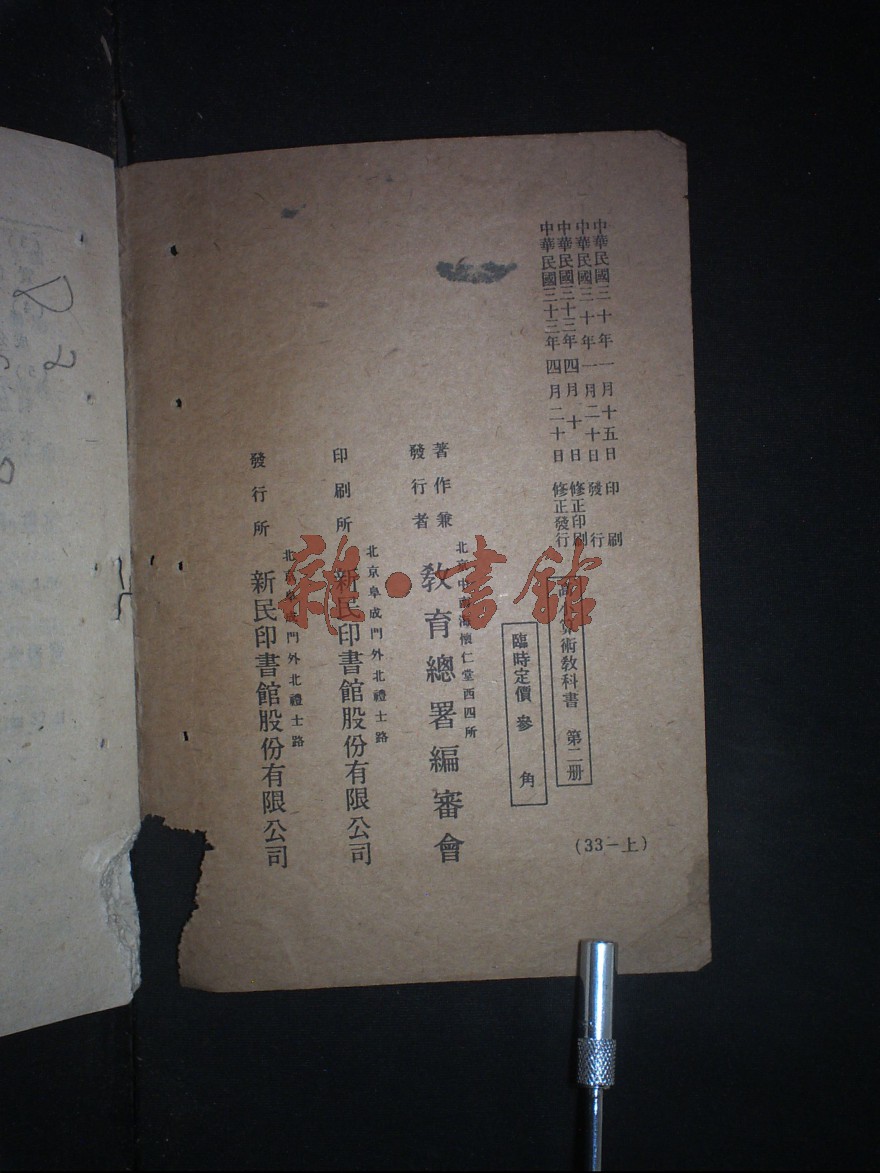 中華民國三十年一月十五日 印刷
中華民國三十年一月二十日 發行
中華民國三十三年四月十日 修正印刷
中華民國三十三年四月二十日 修正發行
算術教科書 第二册
(33—上)
臨時定價 參角
著作兼
發行者
北京中南海懷仁堂西四所
教育總署編審會
印刷所
北京阜成門外北禮士路
新民印書館股份有限公司
發行所
北京阜成門外北禮士路
新民印書館股份有限公司
雜·書館